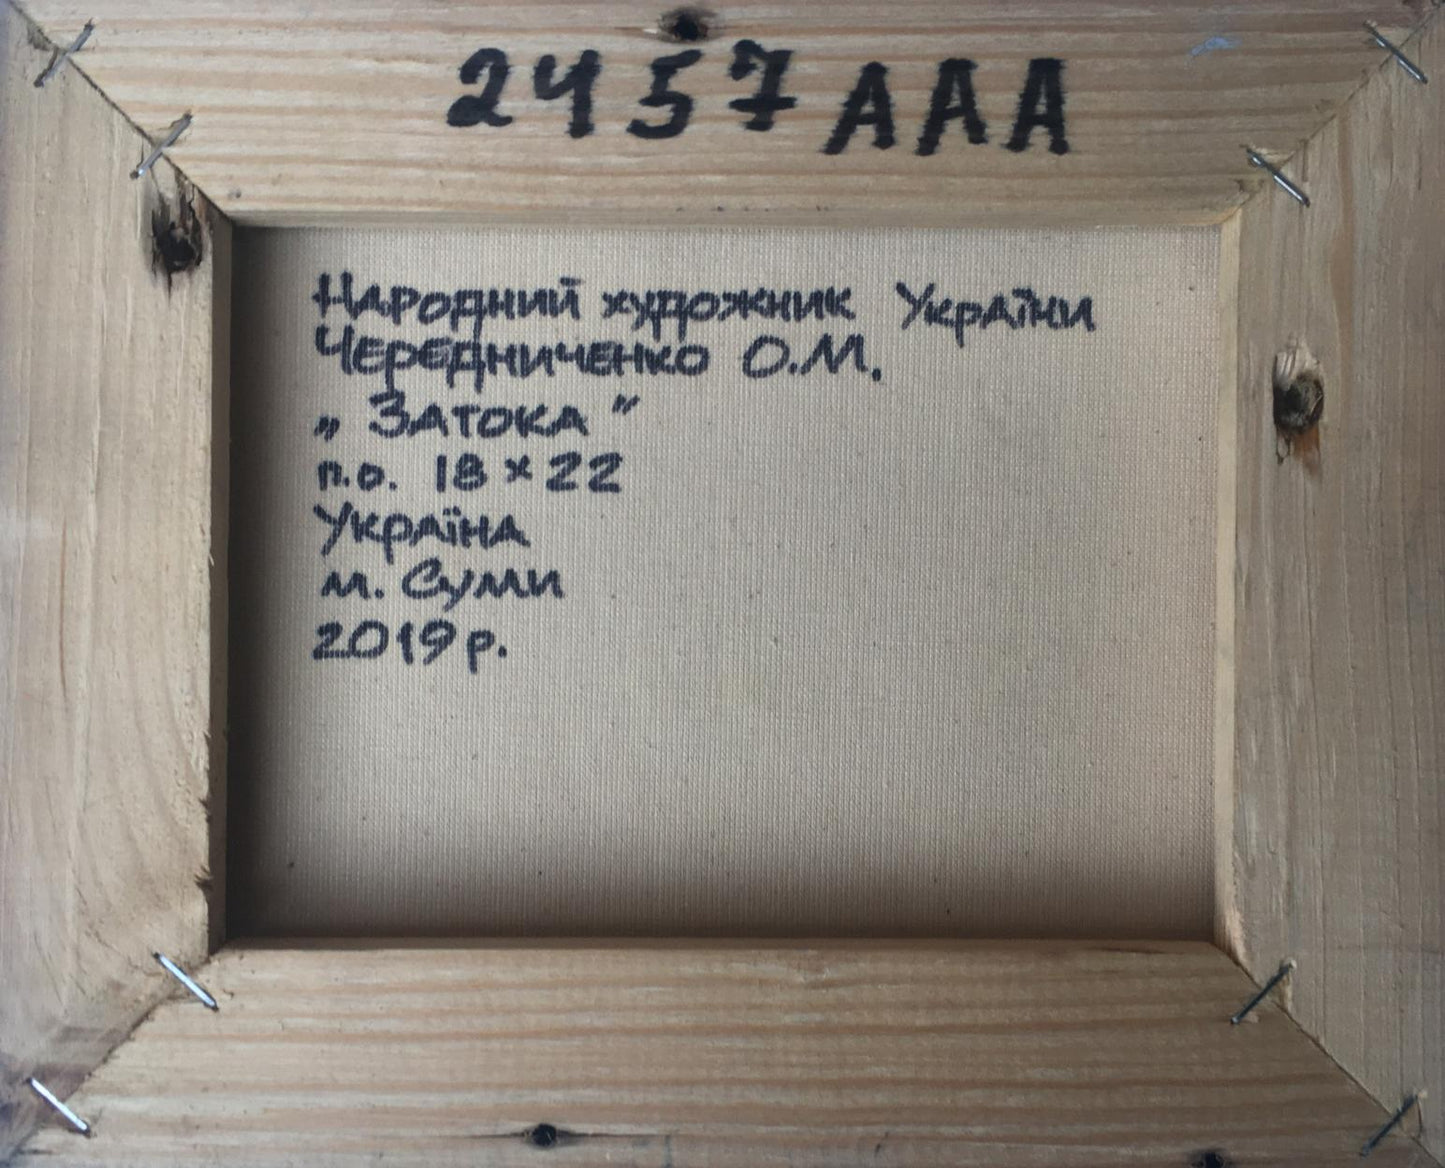 2457 AAA
Народний художник України
Чередниченко О.М.
„Затока”
п.о. 18×22
Україна
м. Суми
2019 р.